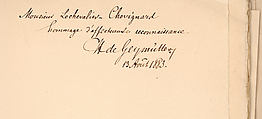 Monsieur Lechevallier Chevignard
hommage d'affectueuse reconnaissance
H de Geymüller
13 Août 1883.